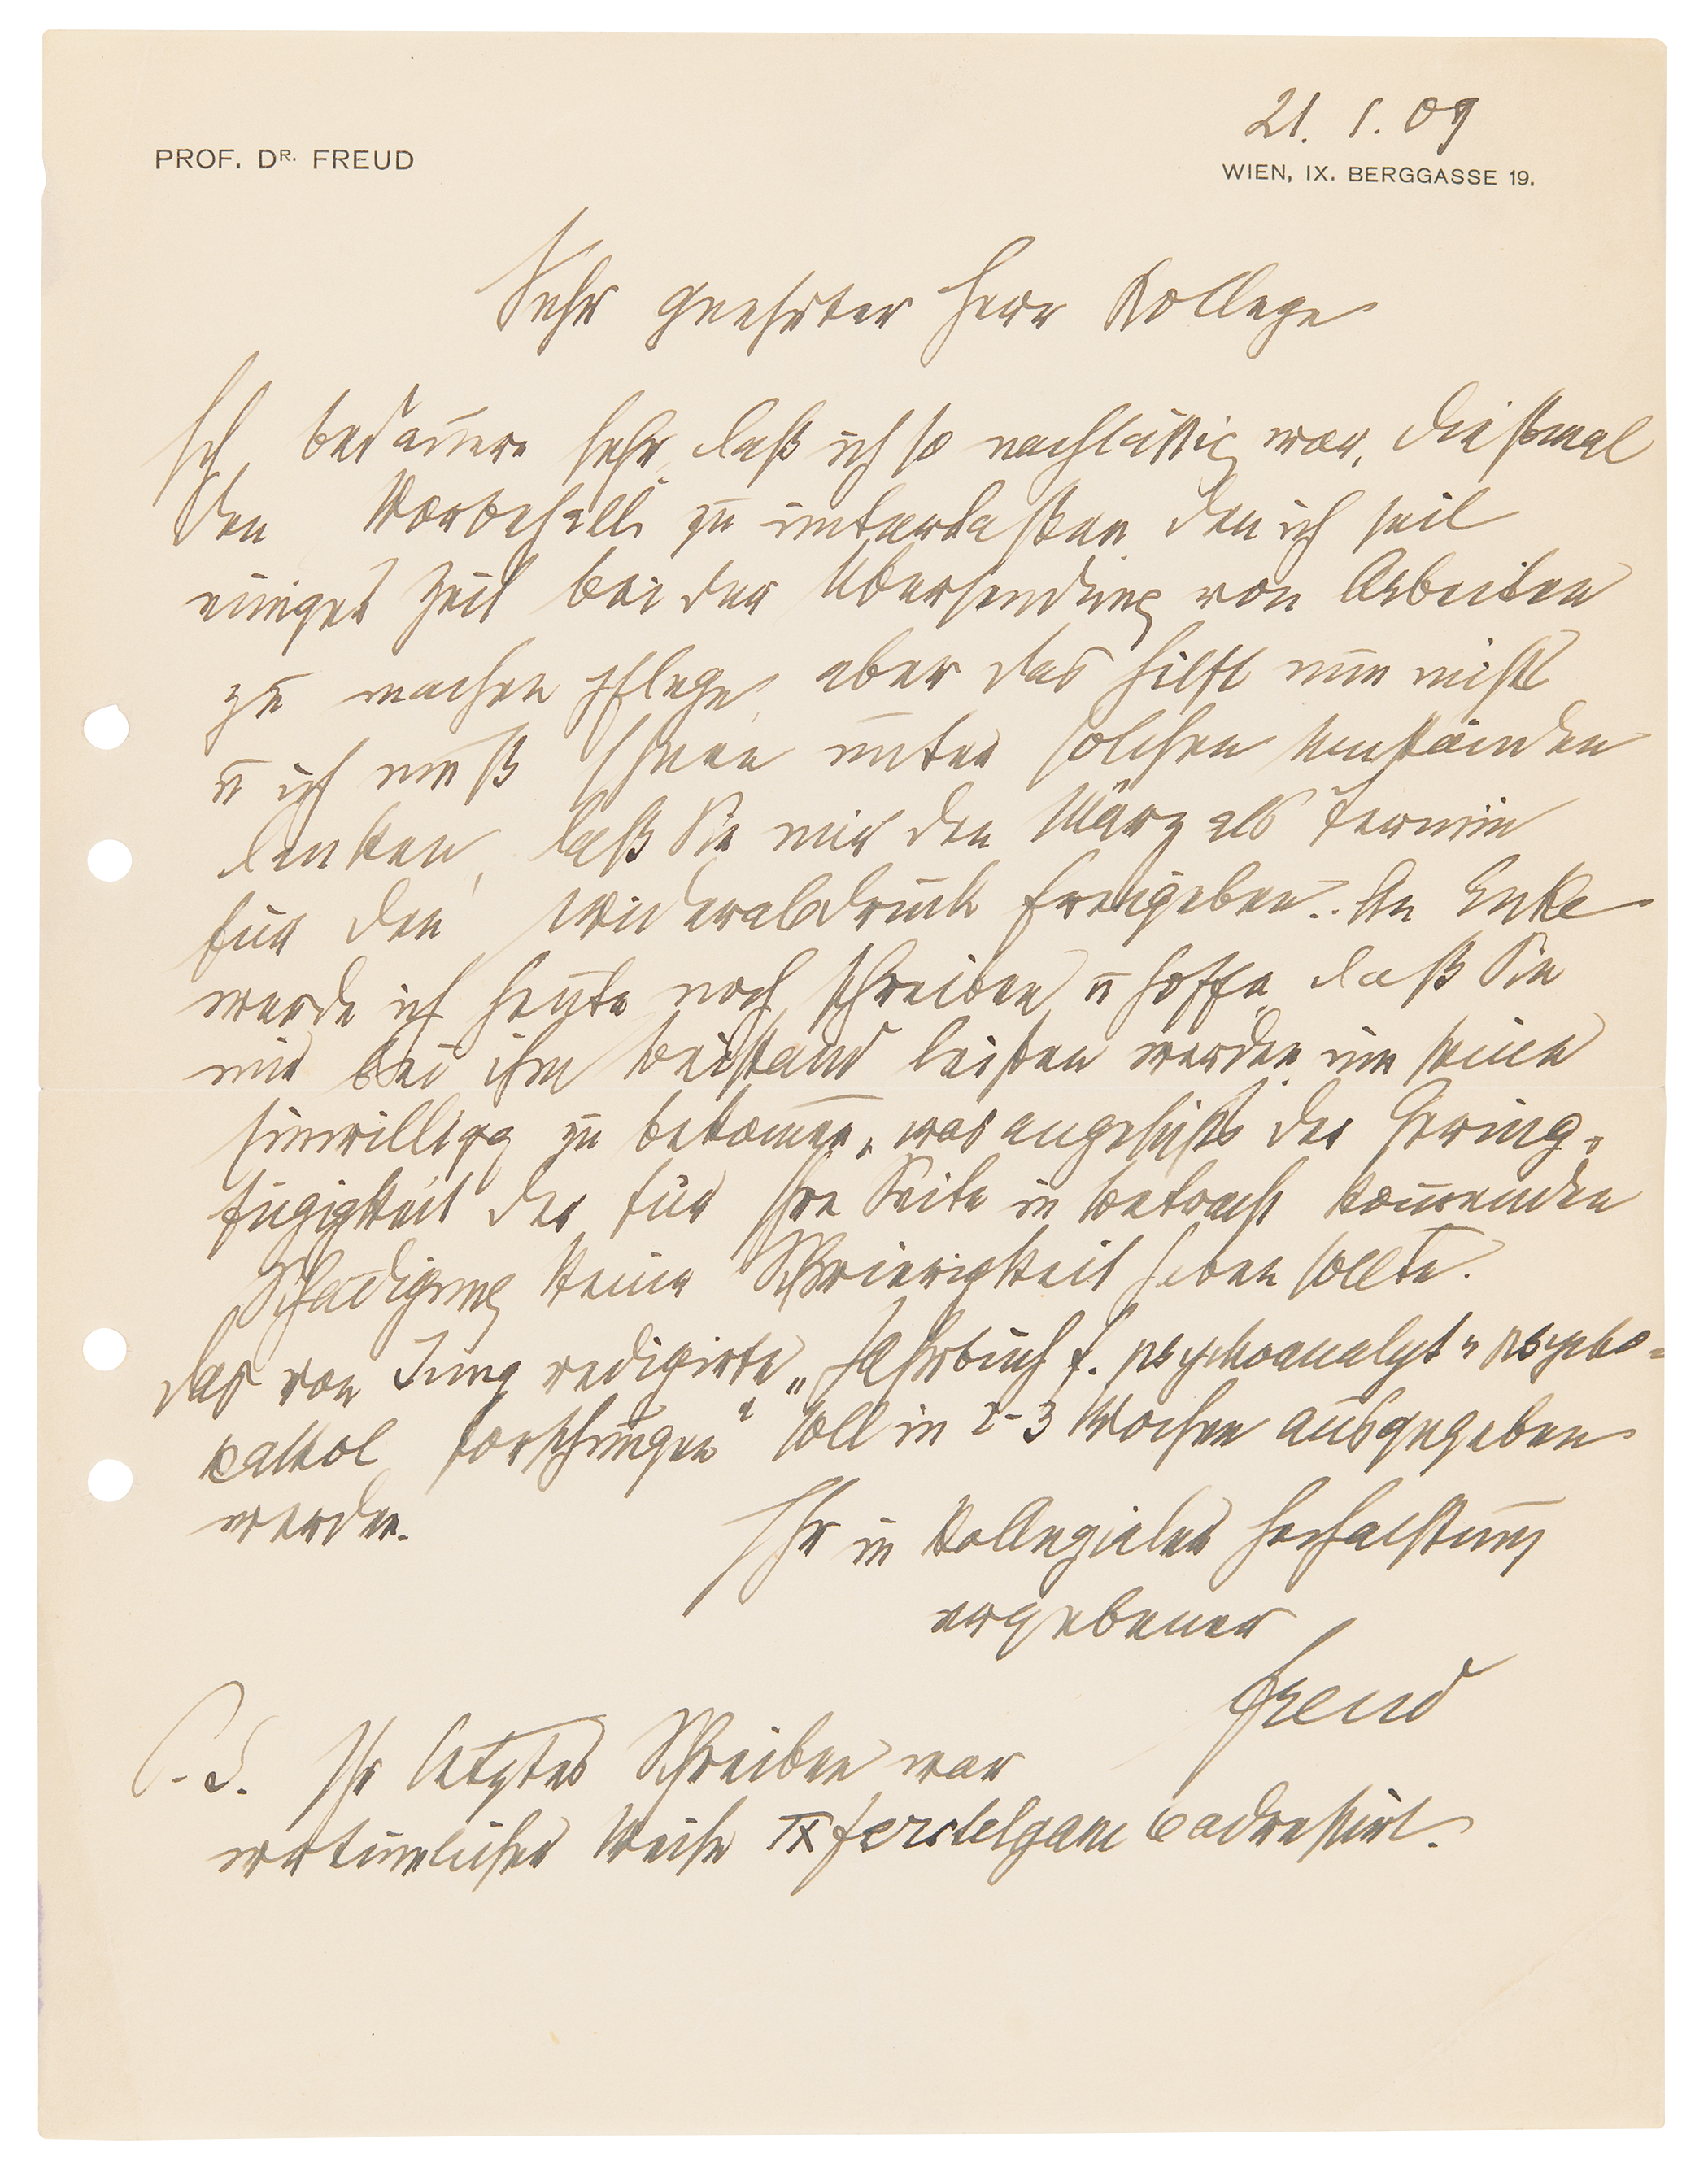 21. 1. 09
PROF. DR. FREUD
WIEN, IX. BERGGASSE 19.
Sehr geehrter Herr Kollege
Ich bedauere sehr, daß ich so nachlässig war, diesmal
den Vorbehalt zu unterlassen, den ich seit
einiger Zeit bei der Übersendung von Arbeiten
zu machen pflege, aber das hilft nun nicht
u ich muß Ihnen unter solchen Umständen
danken, daß Sie mir den März als Termin
für den Wiederabdruck freigeben. An Enke
werde ich heute noch schreiben u hoffe, daß Sie
mir bei ihm Beistand leisten werden, um seine
Einwilligg zu bekommen, was angesichts der Gering-
fügigkeit der für Ihre Seite in Betracht kommenden
Schädigung keine Schwierigkeit haben sollte.
Das von Jung redigirte „Jahrbuch f. psychoanalyt u psycho-
pathol Forschungen“ soll in 2-3 Wochen ausgegeben
werden.
Ihr in kollegialer Hochachtung
ergebener
Freud
P.S. Ihr letztes Schreiben war
irrtümlicher Weise IX Ferstelgasse 6 adressirt.